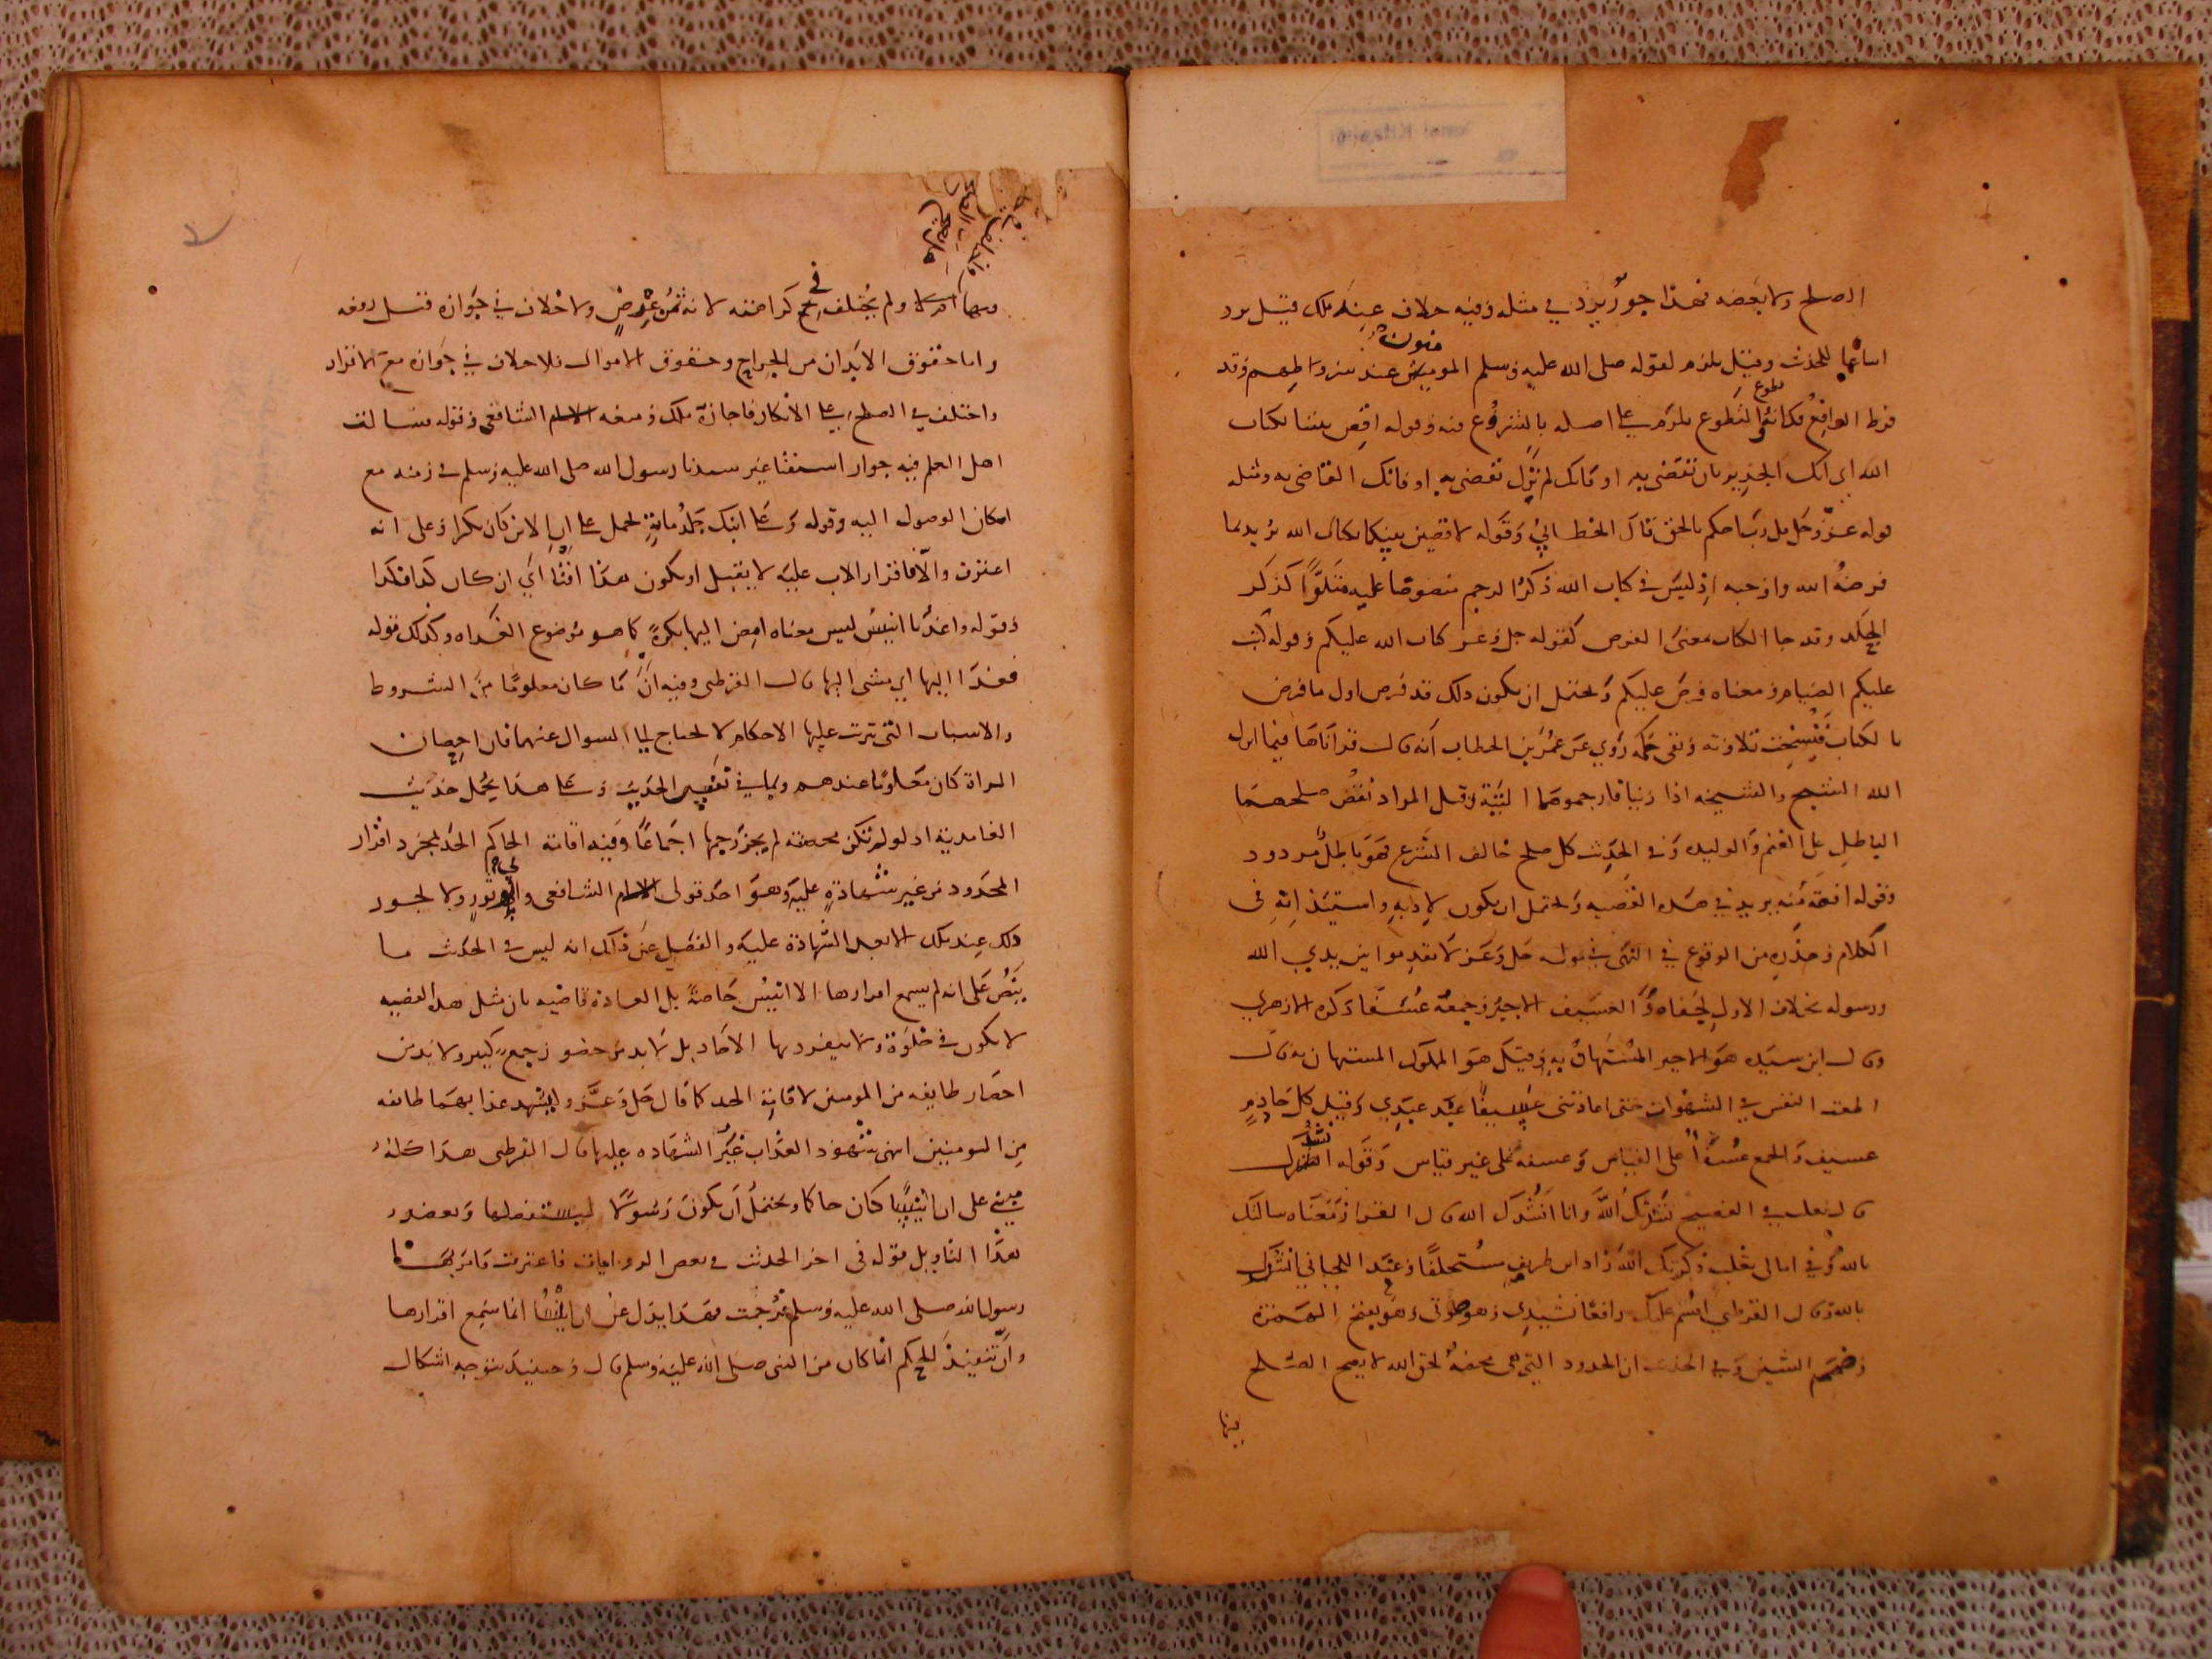 الصلح ولا بعضه فهذا جور يرد في مثله وفيه خلاف عند ملك قيل يرد
للحدث وقيل يلزم لقوله صلى الله عليه وسلم المومنون عند شروطهم وقد
فرط الدافع فكانه تطوع والتطوع يلزم على اصله بالشروع فيه وقوله اقض بيننا بكتاب
الله اي انك الجدير بان تقضي به او فانك لم تزل تقضي به او فانك القاضي به ومثله
قوله عز وجل قل رب احكم بالحق قال الخطابي وقوله لاقضين بينكما بكتاب الله يريد بما
فرضه الله واوجبه اذ ليس في كتاب الله ذكر الرجم منصوصا عليه متلوا كذكر
الجلد وقد جا الكتاب بمعنى الفرض كقوله جل وعز كتاب الله عليكم وقوله كتب
عليكم الصيام ومعناه فرض عليكم ويحتمل ان يكون ذلك قد فرض اول ما فرض
بالكتاب فنسخت تلاوته وبقي حكمه روي عن عمر بن الخطاب انه قال قراناها فيما انزل
الله الشيخ والشيخة اذا زنيا فارجموهما البتة وقيل المراد نقض صلحهما
الباطل على الغنم والوليدة وفي الحديث كل صلح خالف الشرع فهو باطل مردود
وقوله افقه منه يريد في هذه القضية ويحتمل ان يكون لادبه واستيذانه في
الكلام وحذره من الوقوع في النهي في قوله جل وعز لا تقدموا بين يدي الله
ورسوله بخلاف الاول لجفاه و العسيف الاجير وجمعه عسفا ذكره الازهري
وقال ابن سيده هو الاجير المستهان به وقيل هو المملوك المستهان به قال
النفس في الشهوات حتى اعادتني عسيفا عبد عبدي وقيل كل خادم
عسيف والجمع عسفا على القياس وعسفه على غير قياس وقوله انشدك
قال ثعلب في الفصيح نشدتك الله وانا انشدك الله قال الفرا ومعناه سالتك
بالله وفي امالي ثعلب ذكرتك الله زاد ابن طريف مستحلفا وعند اللحياني انشدك
بالله وقال القرطبي اقسم عليك رافعا نشيدي وهو صوتي وهو بفتح الهمزة
وضم الشين وفي الحديث ان الحدود التي هي محضة لحق الله لا يصح الصلح
فيها
ولم يختلف في كراهته لانه ثمن عرض ولا خلاف في جوازه قبل رفعه
واما حقوق الابدان من الجراح وحقوق الاموال فلا خلاف في جوازه مع الاقرار
واختلف في الصلح على الانكار فاجازه ملك ومنعه الامام الشافعي وقوله فسالت
اهل العلم فيه جواز استفتا غير سيدنا رسول الله صلى الله عليه وسلم في زمنه مع
امكان الوصول اليه وقوله وعلى ابنك جلد ماية يحمل على ان الابن كان بكرا وعلى انه
اعترف والا فاقرار الاب عليه لا يقبل او يكون هذا افتا اي ان كان كذا فكذا
وقوله واغد يا انيس ليس معناه امض اليها بكرة كما هو موضوع الغداه وكذلك قوله
فغدا اليها اي مشى اليها قال القرطبي وفيه ان ما كان معلوما من الشروط
والاسباب التي ترتب عليها الاحكام لا يحتاج الى السوال عنها فان احصان
المراة كان معلوما عندهم وعلى هذا يحمل حديث
الغامدية اذ لو لم تكن محصنة لم يجز رجمها اجماعا وفيه اقامة الحاكم الحد بمجرد اقرار
المحدود من غير شهادة عليه وهو احد قولي الامام الشافعي وابي ثور ولا يجوز
ذلك عند ملك الا بعد الشهادة عليه والفصل عن ذلك انه ليس في الحديث ما
ينص على انه لم يسمع اقرارها الا انيس خاصة بل العادة قاضيه بان مثل هذه القضيه
لا يكون في خلوة ولا ينفرد بها الاحاد بل لا بد من حضور جمع كبير ولا بد من
احضار طايفه من المومنين لاقامة الحد كما قال جل وعز وليشهد عذابهما طايفه
من المومنين انتهى شهود العذاب غير الشهاده عليها قال القرطبي هذا كله
مبني على ان انيسا كان حاكما ويحتمل ان يكون رسولا ليستفصلها ويعضد
هذا التاويل قوله في اخر الحديث في بعض الروايات فاعترفت فامر بها
رسول الله صلى الله عليه وسلم فرجمت فهذا يدل على ان انيسا انما سمع اقرارها
وان تنفيذ الحكم انما كان من النبي صلى الله عليه وسلم قال وحينيذ يتوجه اشكال